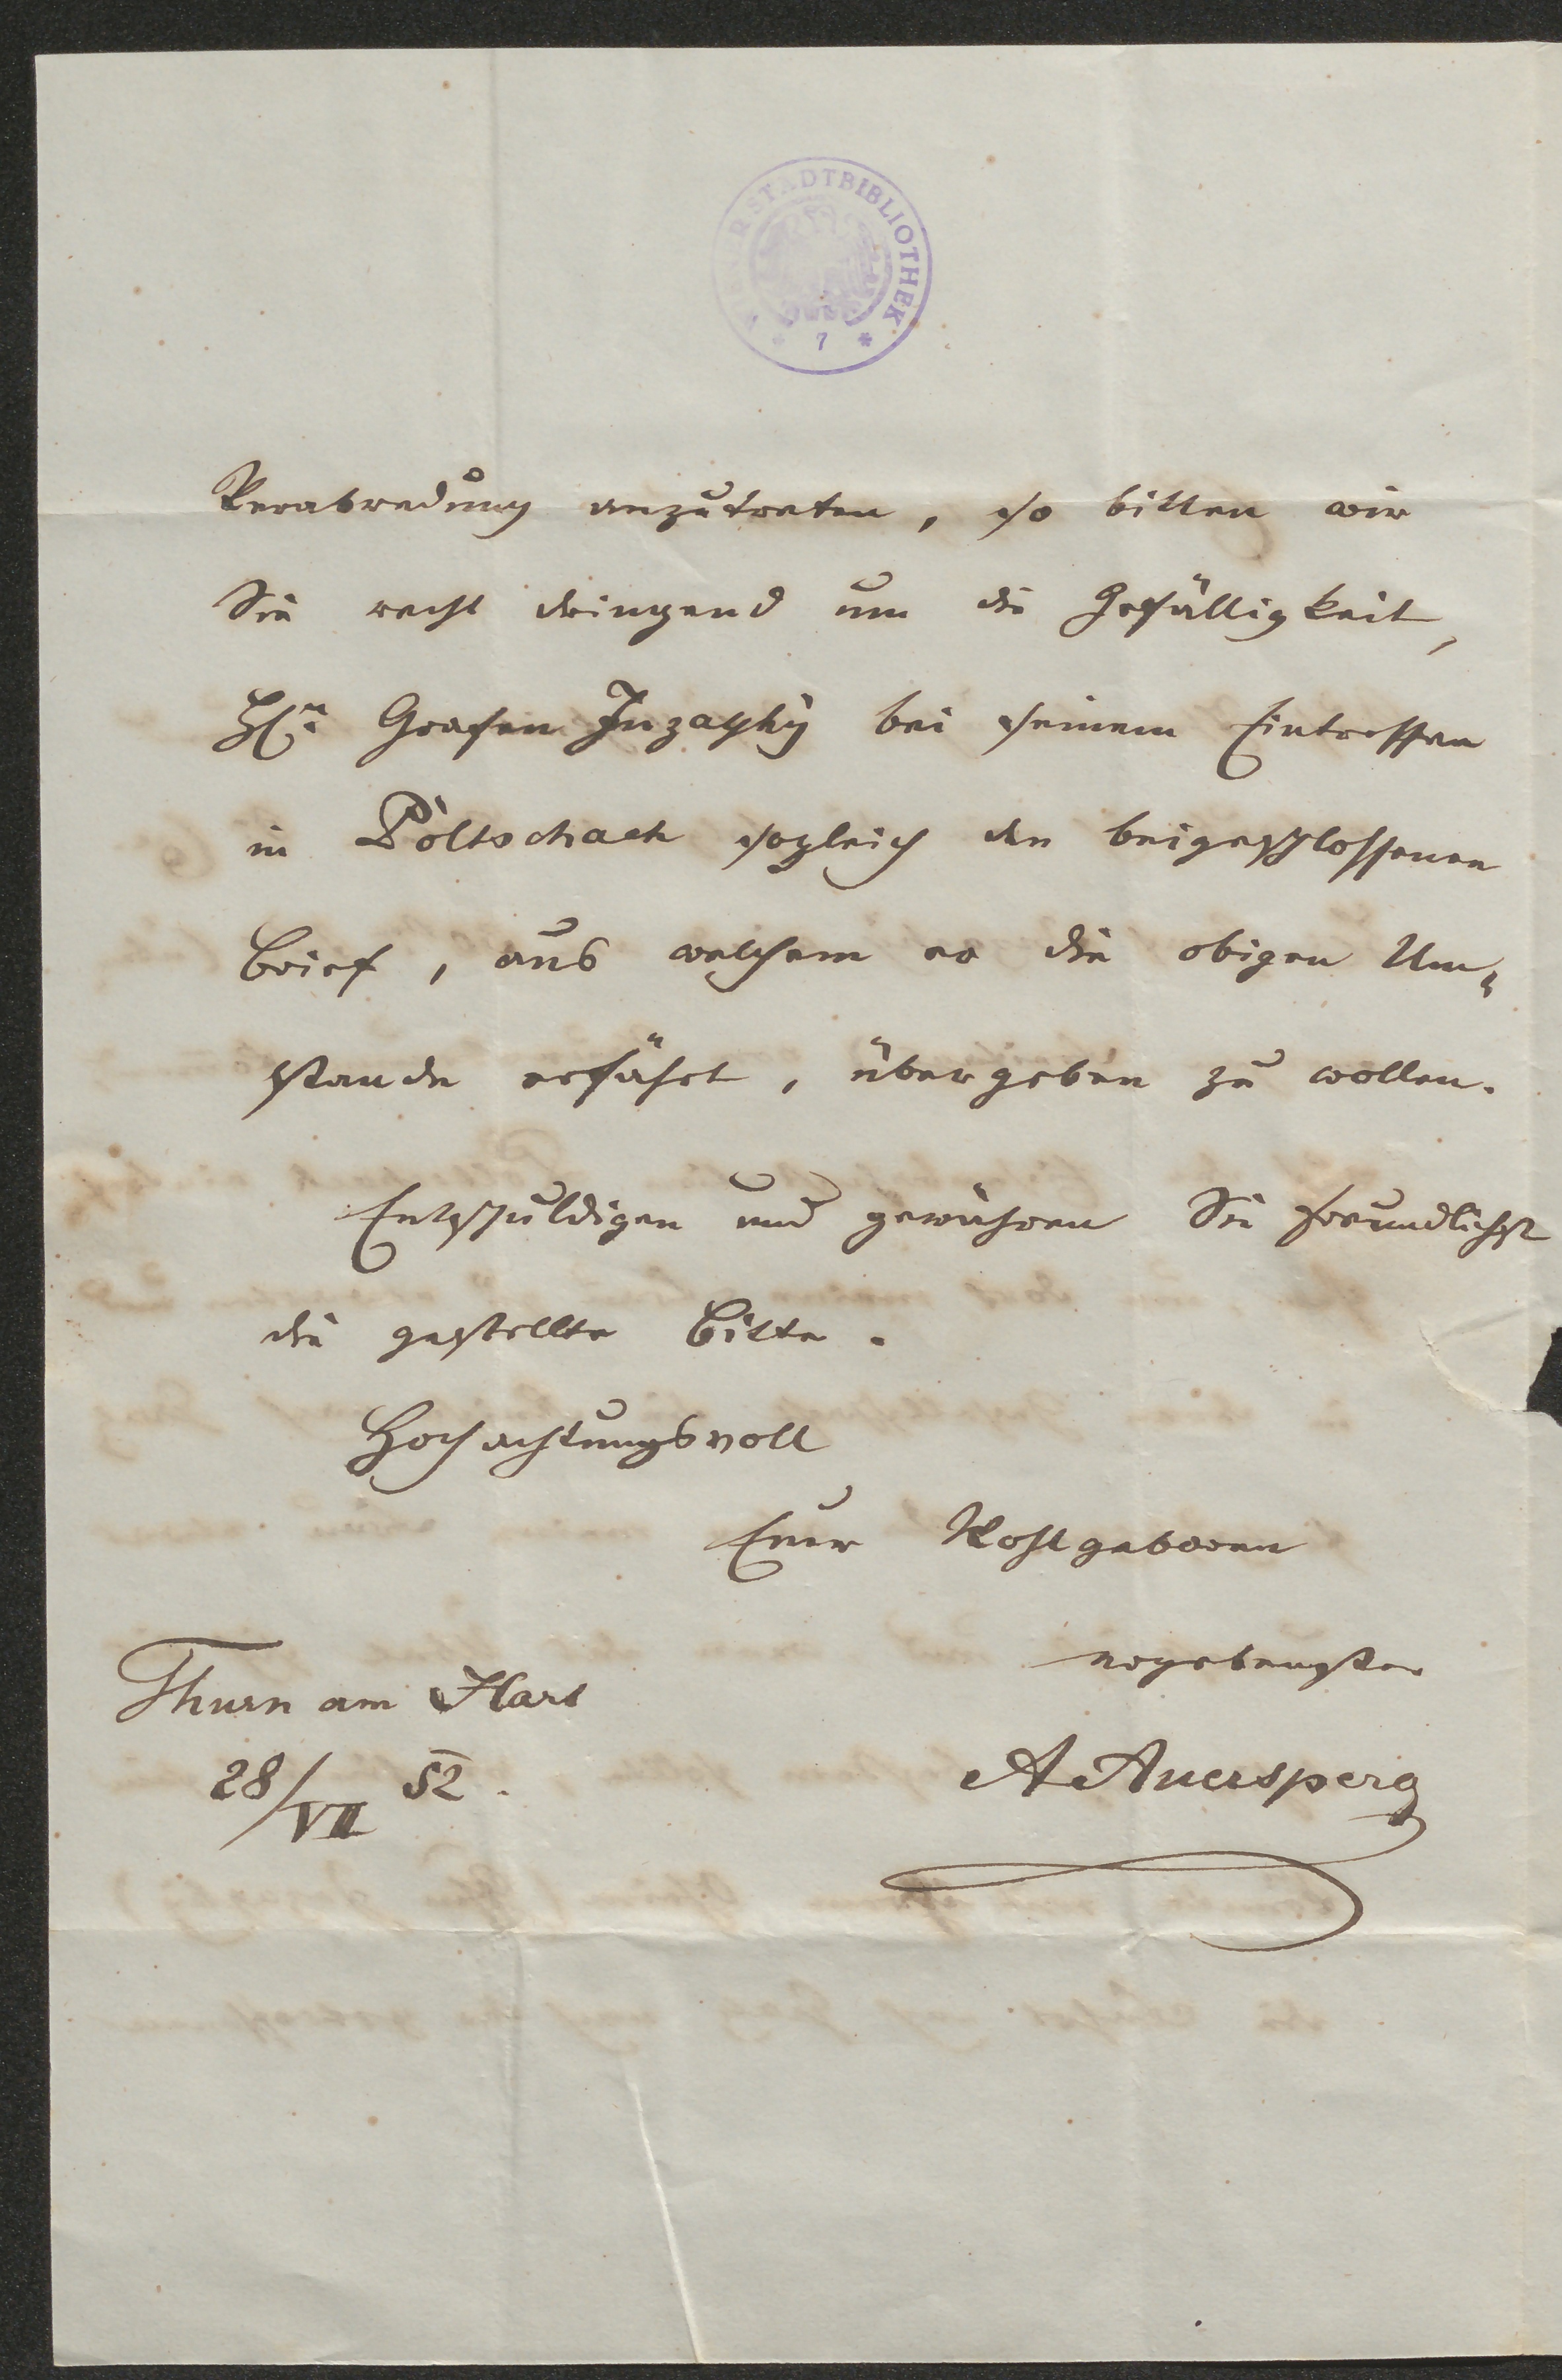 STADTBIBLIOTHEK
* 7 *
Verabredung anzutreten, so bitten wir
Sie recht dringend um die Gefälligkeit,
H. Grafen Inzaghy bei seinem Eintreffen
in Pöltschach sogleich den beigeschlossenen
Brief, aus welchem er die obigen Um¬
stande erfährt, übergeben zu wollen.
Entschuldigen und gewähren Sie freundlichst
die gestellte Bitte.
Hochachtungsvoll
Euer Wohlgeboren
ergebenster
Thurn am Hart
28/VII 52.
A Auersperg